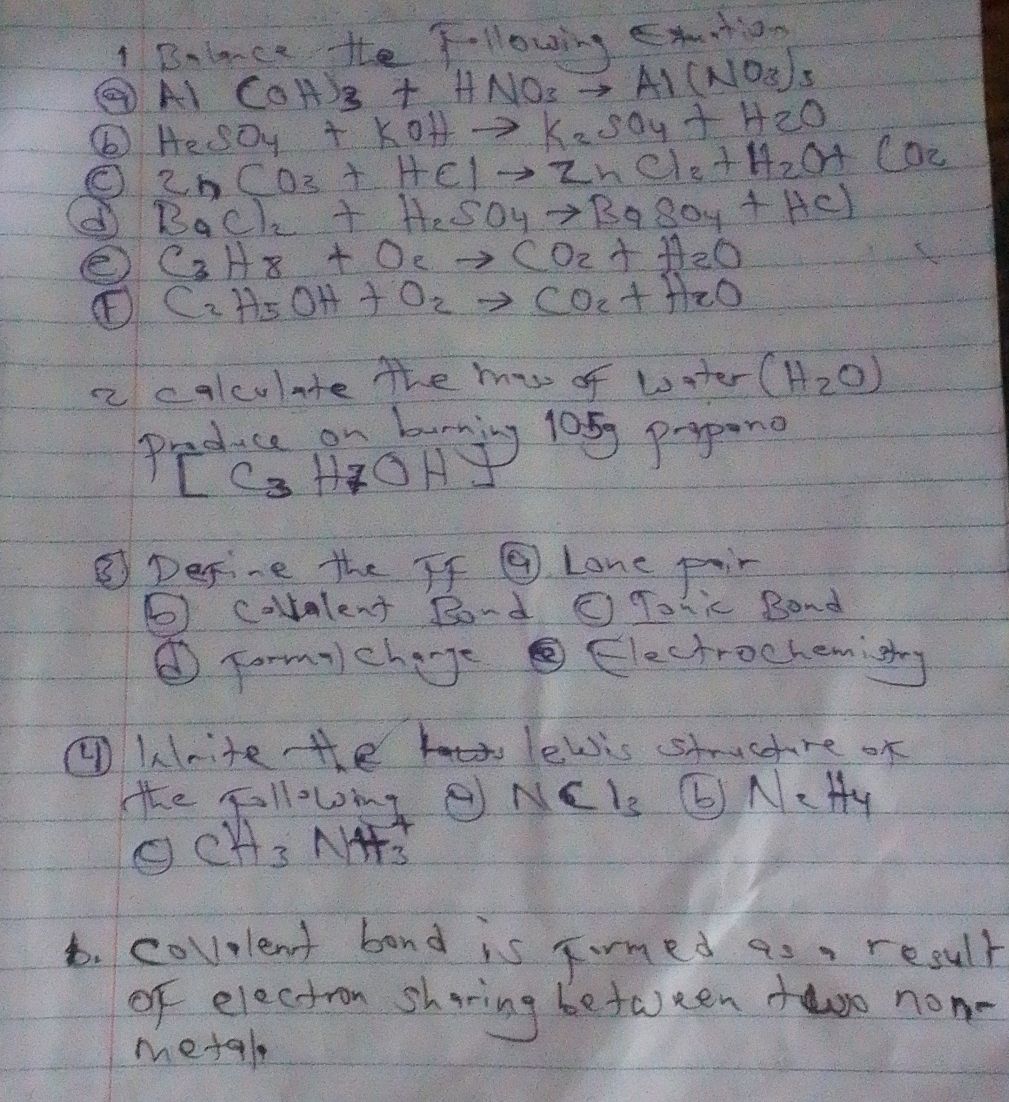 1 Balance the Following Equation
(a) Al (OH)3 + HNO3 → Al(NO3)3
(b) H2SO4 + KOH → K2SO4 + H2O
(c) ZnCO3 + HCl → ZnCl2 + H2O + CO2
(d) BaCl2 + H2SO4 → BaSO4 + HCl
(e) C3H8 + O2 → CO2 + H2O
(F) C2H5OH + O2 → CO2 + H2O
2 calculate the mass of water (H2O)
produce on burning 105g propano
[C3H7OH]
(3) Define the FF (a) Lone pair
(b) Covalent Bond (c) Ionic Bond
(d) Formal charge (e) Electrochemistry
(4) Write the lewis structure of
the following (a) NCl3 (b) N2H4
(c) CH3 NH3+
b. Covalent bond is formed as a result
of electron sharing between two non-
metals